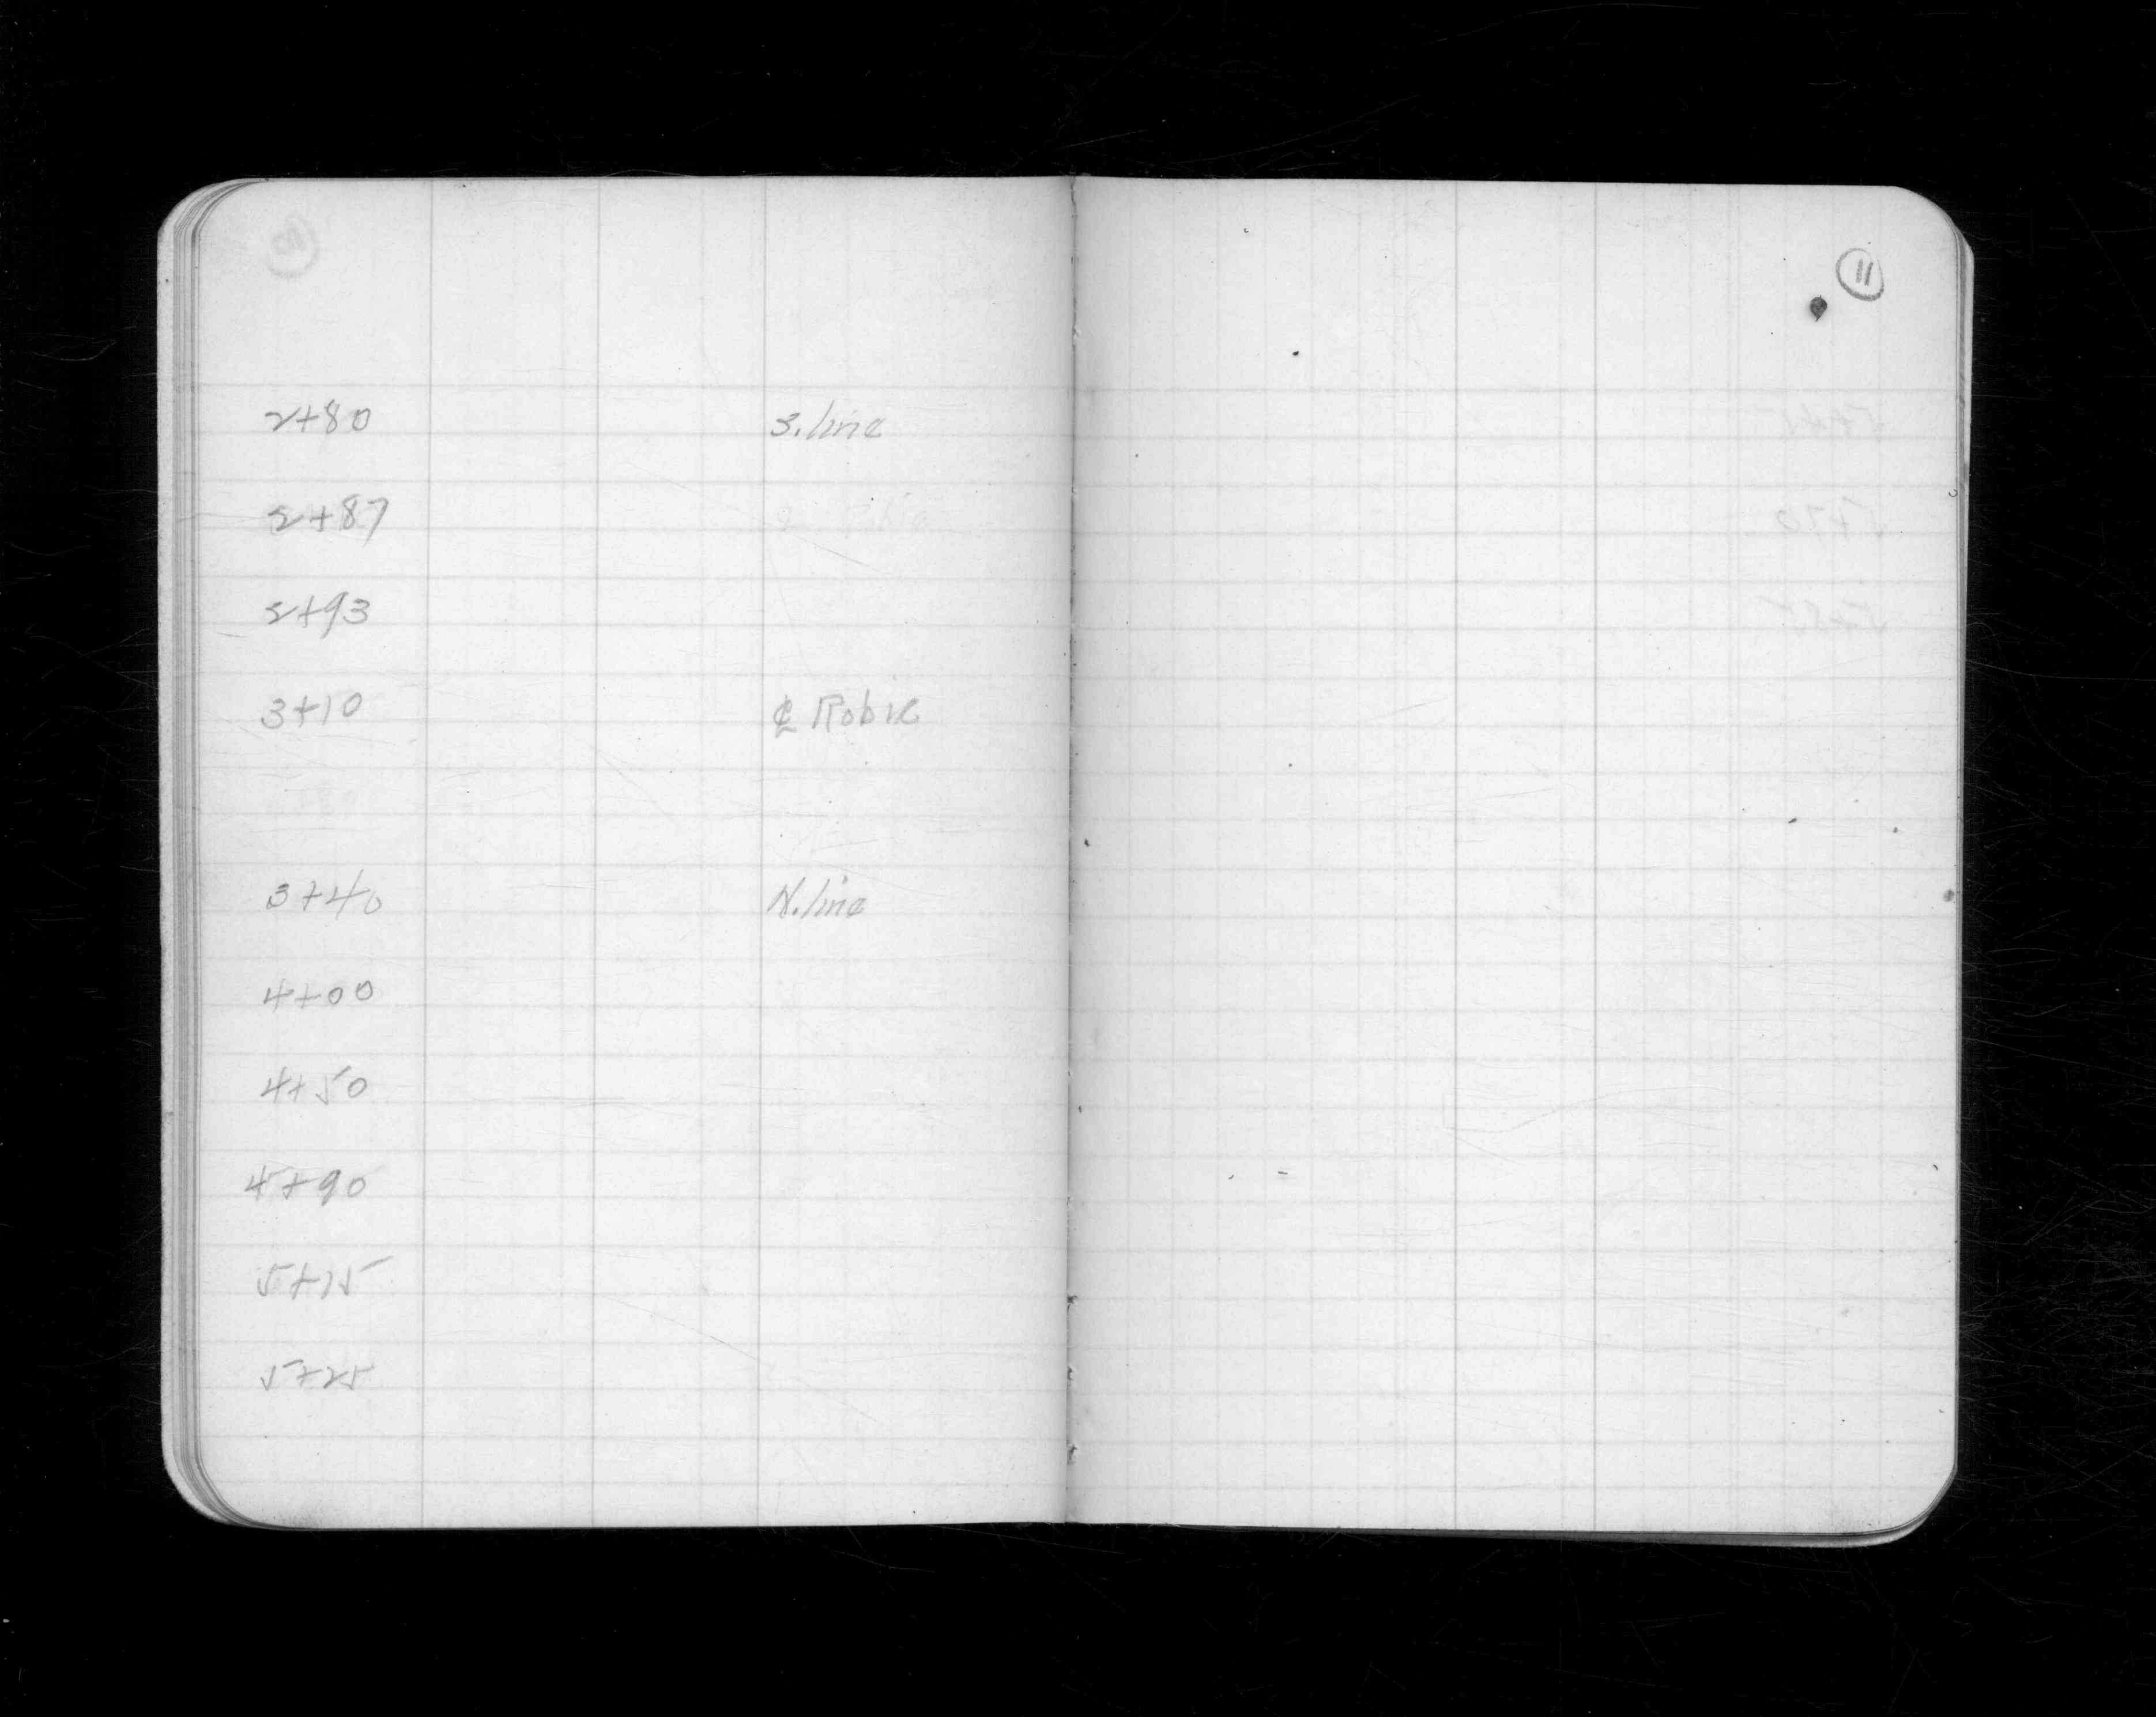 11
2+80 S. line
2+87
2+93
3+10 ℄ Robie
3+40 N. line
4+00
4+50
4+90
5+15
5+25